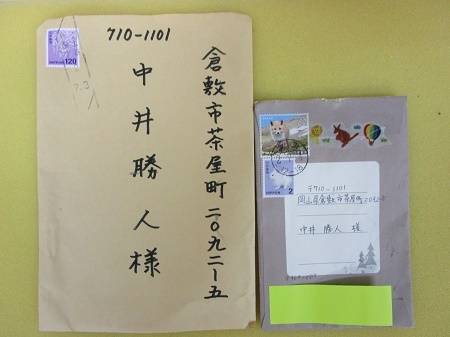 120
710-1101
倉敷市茶屋町二〇九二ー五
中井勝人様
2
〒710-1101
岡山県倉敷市茶屋町2092-5
中井 勝人 様